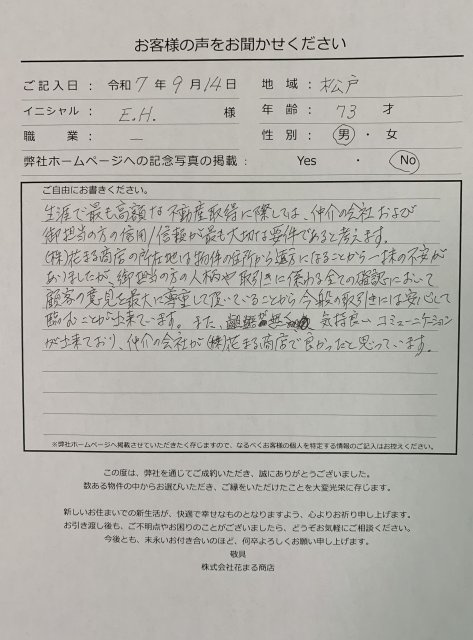 お客様の声をお聞かせください
ご記入日： 令和 7 年 9 月 14 日 地 域： 松戸
イニシャル： E.H. 様 年 齢： 73 才
職 業： ー 性 別： 男 ・ 女
弊社ホームページへの記念写真の掲載： Yes ・ No
ご自由にお書きください。
生涯で最も高額な不動産取得に際しては、仲介の会社および
御担当の方の信用/信頼が最も大切な要件であると考えます。
(株)花まる商店の所在地は物件の住所から遠方になることから一抹の不安が
ありましたが、御担当の方の人柄や取引きに係わる全ての確認において
顧客の意見を最大に尊重して頂いていることから今般の取引きには安心して
臨むことが出来ています。また、 気持良いコミュニケーション
が出来ており、仲介の会社が(株)花まる商店で良かったと思っています。
※弊社ホームページへ掲載させていただきたく存じますので、なるべくお客様の個人を特定する情報のご記入はお控えください。
この度は、弊社を通じてご成約いただき、誠にありがとうございました。
数ある物件の中からお選びいただき、ご縁をいただけたことを大変光栄に存じます。
新しいお住まいでの新生活が、快適で幸せなものとなりますよう、心よりお祈り申し上げます。
お引き渡し後も、ご不明点やお困りのことがございましたら、どうぞお気軽にご相談ください。
今後とも、末永いお付き合いのほど、何卒よろしくお願い申し上げます。
敬具
株式会社花まる商店